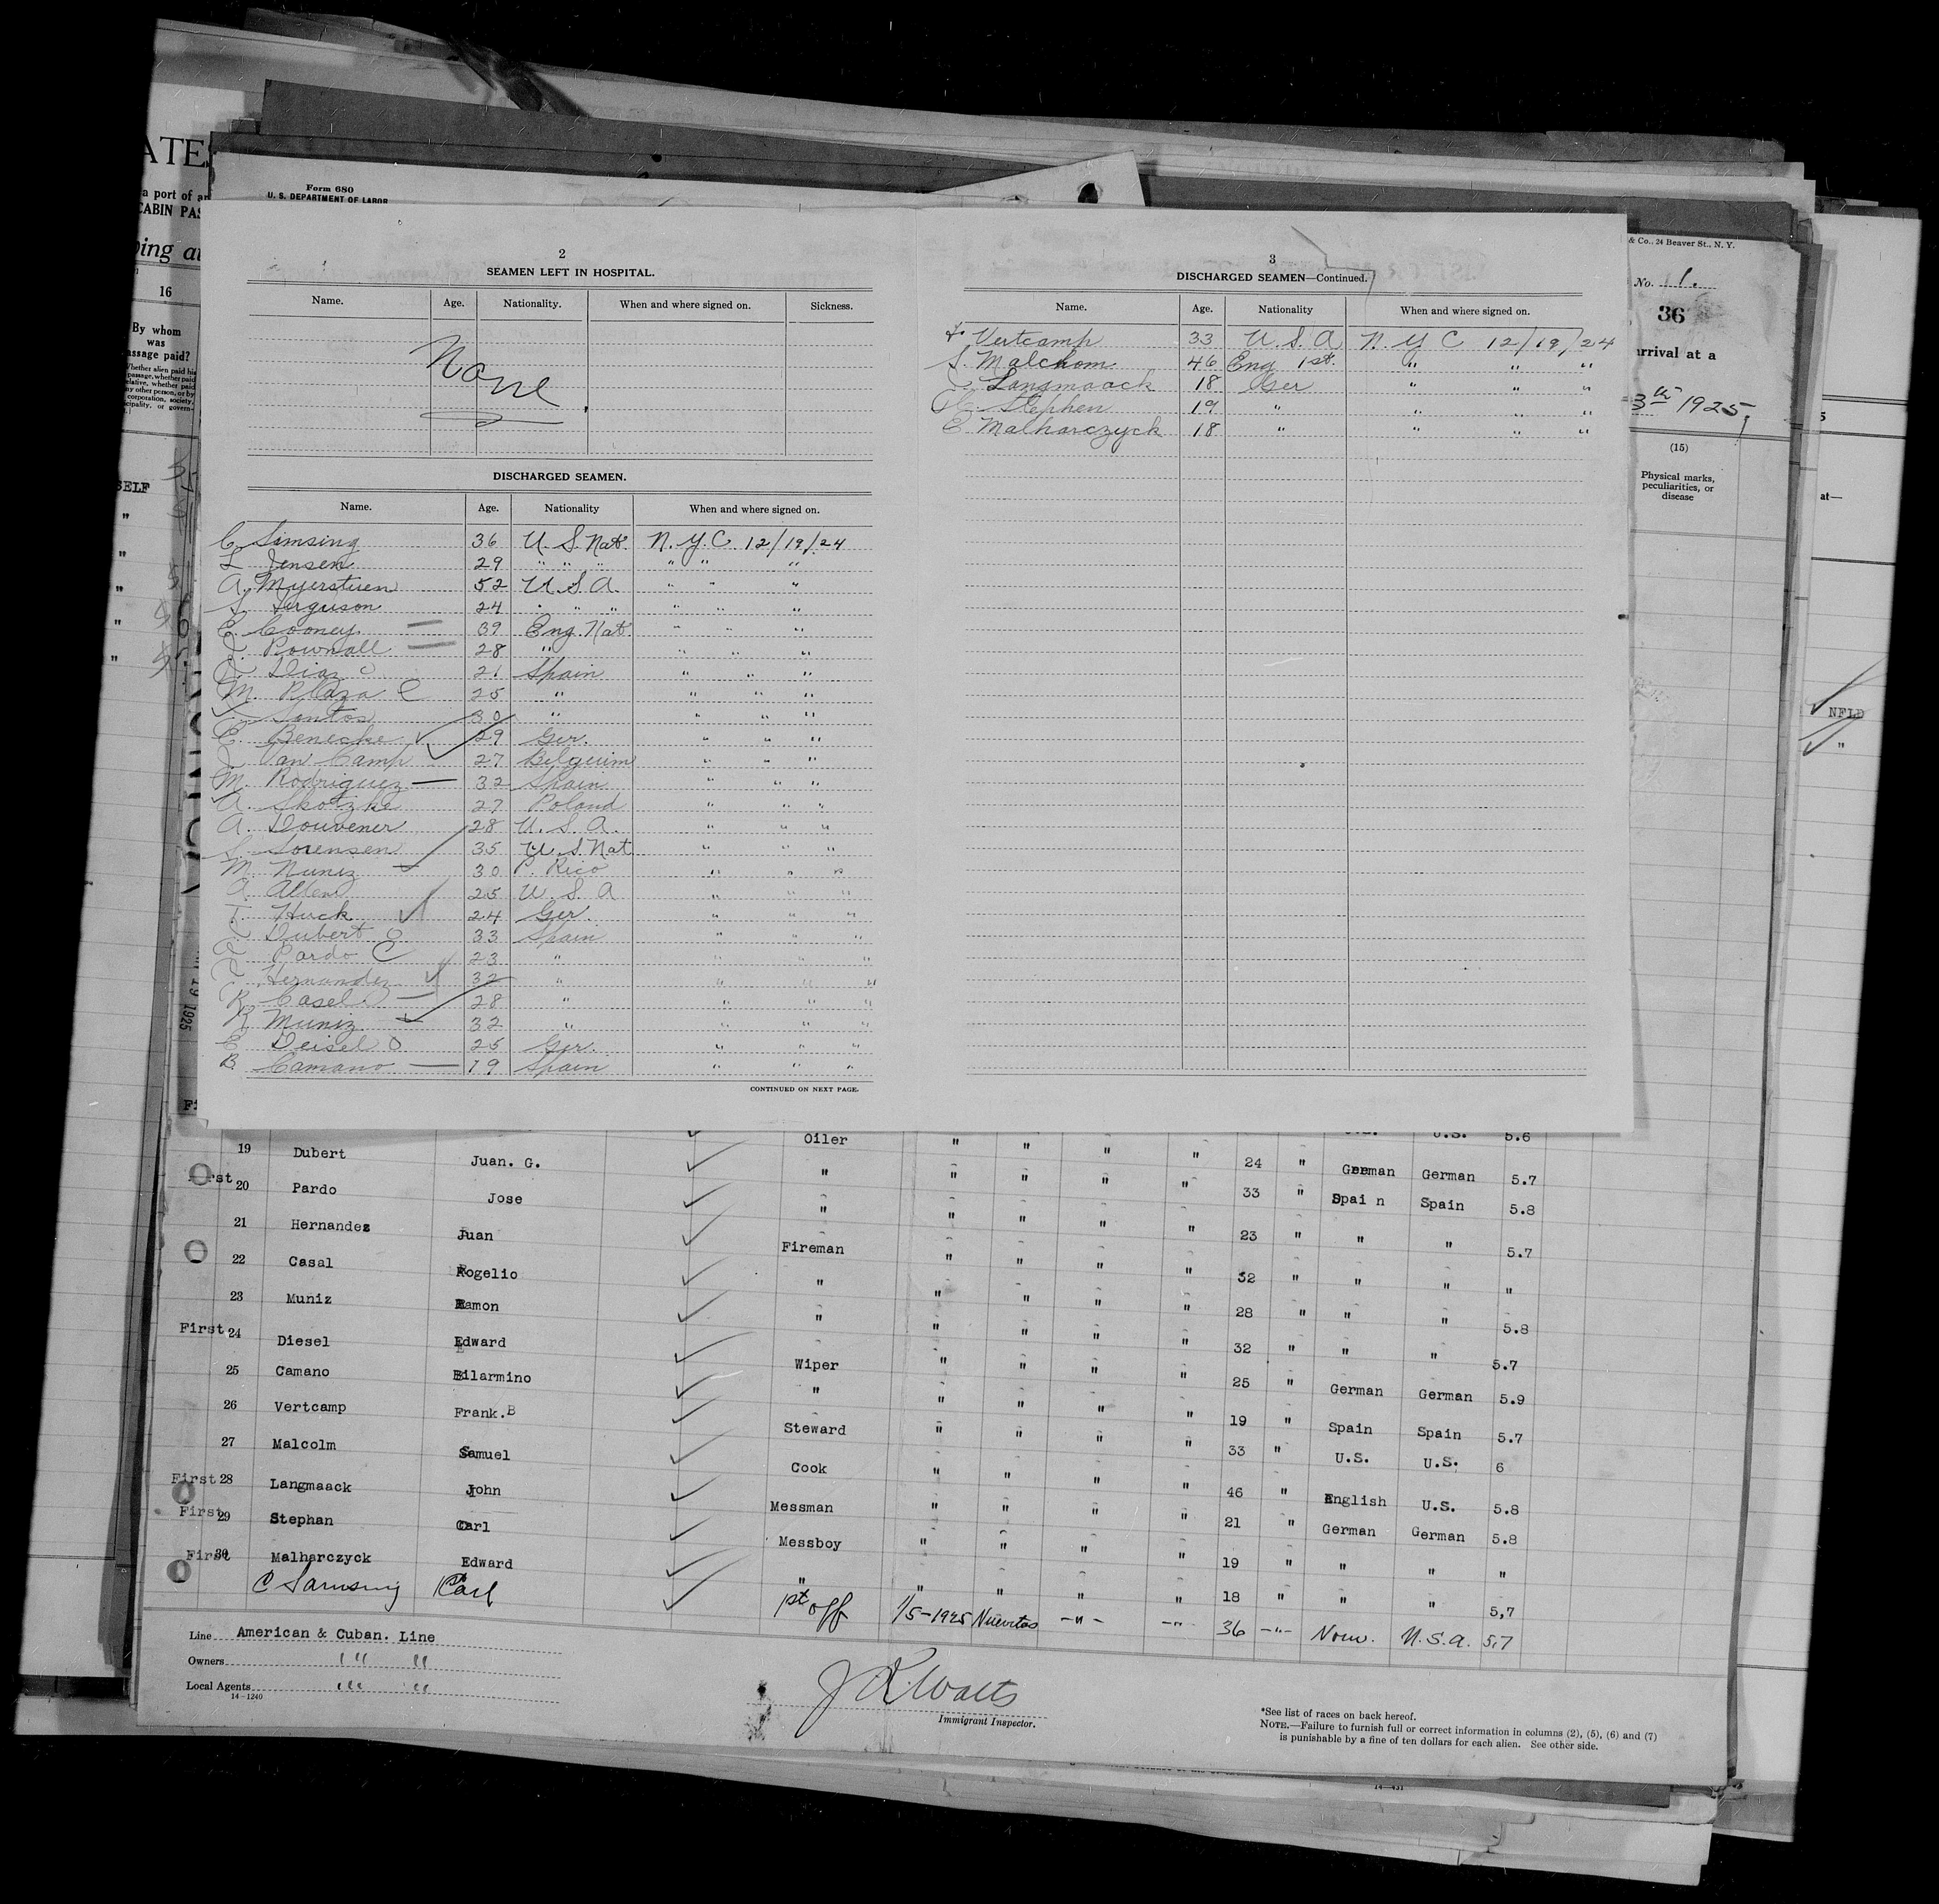 ATES
a port of ar
CABIN PAS
ping at
16
By whom
was
assage paid?
SELF
"
"
"
"
"
Form 680
U. S. DEPARTMENT OF LABOR
& Co., 24 Beaver St., N. Y.
No. 1.
36
arrival at a
3th 1925,
(15)
Physical marks,
peculiarities, or
disease
at—
NFLD
"
19 1925
2
SEAMEN LEFT IN HOSPITAL.
Name. Age. Nationality. When and where signed on. Sickness.
None
DISCHARGED SEAMEN.
Name. Age. Nationality When and where signed on.
C. Simsing 36 U. S. Nat. N. Y. C. 12/19/24
L Jensen 29 " " " " " "
A. Myerstuen 52 U. S. A. " " "
S. Ferguson 24 " " " " " "
E. Cooney 39 Eng Nat. " " "
J. Pownall 28 " " " "
Diaz 21 Spain " " "
M. Plaza C 25 " " " "
Santos 30 " " " "
E. Benecke 29 Ger. " " "
J. Van Camp 27 Belguim " " "
M. Rodriguez 32 Spain " " "
A. Skotzke 27 Poland " " "
A. Douvener 28 U. S. A. " " "
S. Sorensen 35 U. S Nat " " "
M. Nuniz 30 P. Rico " " "
A. Allen 25 U. S. A " " "
T. Huck 24 Ger. " " "
Dubert 33 Spain " " "
Pardo C 23 " " " "
Hernandez 32 " " " "
R. Casel 28 " " " "
R Muniz 32 " " " "
E Deisel O 25 Ger. " " "
B. Camano 19 Spain " " "
CONTINUED ON NEXT PAGE.
3
DISCHARGED SEAMEN—Continued.
Name. Age. Nationality When and where signed on.
F. Vertcamp 33 U. S. A N. Y C 12/19/24
S. Malchom 46 Eng 1st. " " "
Langmaack 18 Ger " " "
C. Stephen 19 " " " "
E. Malharczyck 18 " " " "
Oiler " " " " U.S. 5.6
19 Dubert Juan. G. " " " " " 24 " German German 5.7
First 20 Pardo Jose " " " " " 33 " Spai n Spain 5.8
21 Hernandez Juan Fireman " " " " 23 " " " 5.7
22 Casal Rogelio " " " " " 32 " " " "
23 Muniz Ramon " " " " " 28 " " " 5.8
First 24 Diesel Edward Wiper " " " " 32 " " " 5.7
25 Camano Bilarmino " " " " " 25 " German German 5.9
26 Vertcamp Frank.B Steward " " " " 19 " Spain Spain 5.7
27 Malcolm Samuel Cook " " " " 33 " U.S. U.S. 6
First 28 Langmaack John Messman " " " " 46 " English U.S. 5.8
First 29 Stephan Carl Messboy " " " " 21 " German German 5.8
First 30 Malharczyck Edward " " " " " 19 " " " "
18 " " " 5,7
C Samsing Carl 1st off 1/5-1925 Nuevitas -"- -"- 36 -"- Norw. U.S.A. 5,7
Line American & Cuban. Line
Owners " " "
Local Agents " " "
14-1240
J R Watts
Immigrant Inspector.
*See list of races on back hereof.
NOTE.—Failure to furnish full or correct information in columns (2), (5), (6) and (7)
is punishable by a fine of ten dollars for each alien. See other side.
14-431